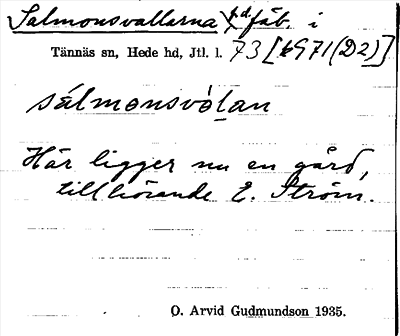 Salmonsvallarna, f.d. fäb. i
Tännäs sn, Hede hd, Jtl. l. 73 [971(D2)]
sálmonsvòlan
Här ligger nu en gård,
tillhörande E. Ström.
O. Arvid Gudmundson 1935.